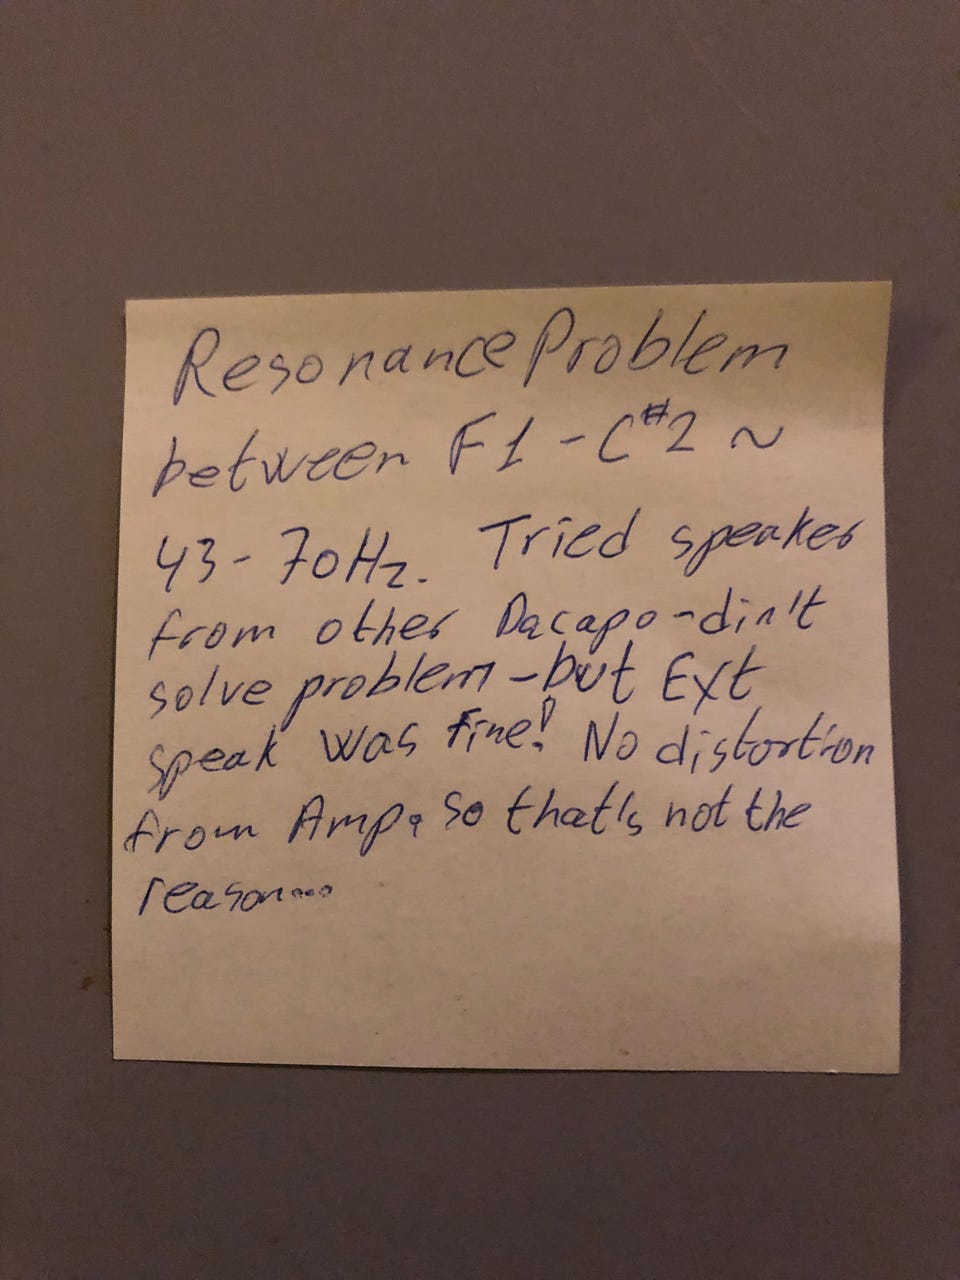 Resonance Problem
between F1 - C#2 ~
43 - 70Hz. Tried speaker
from other Dacapo - din't
solve problem - but Ext
speak was fine! No distortion
from Amp, so that's not the
reason...